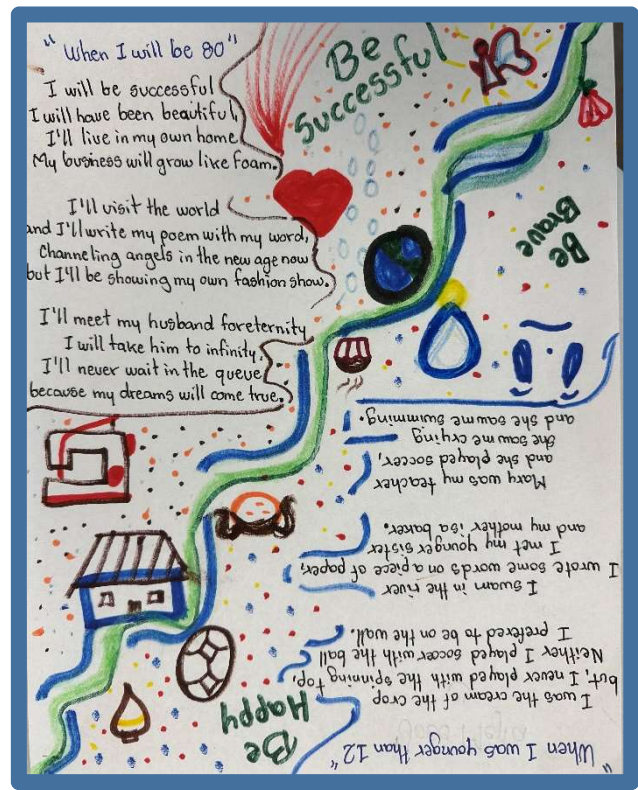 "When I will be 80"
I will be successful
I will have been beautiful,
I'll live in my own home
My business will grow like foam.
I'll visit the world
and I'll write my poem with my word,
Channeling angels in the new age now
but I'll be showing my own fashion show.
I'll meet my husband foreternity
I will take him to infinity,
I'll never wait in the queue
because my dreams will come true.
Be
Successful
Be
Brave
"When I was younger than 12"
I was the cream of the crop
but, I never played with the spinning top,
Neither I played soccer with the ball
I prefered to be on the wall.
I swam in the river
I wrote some words on a piece of paper,
I met my younger sister
and my mother is a baker.
Mary was my teacher
and she played soccer,
She saw me crying
and she saw me swimming.
Be
Happy